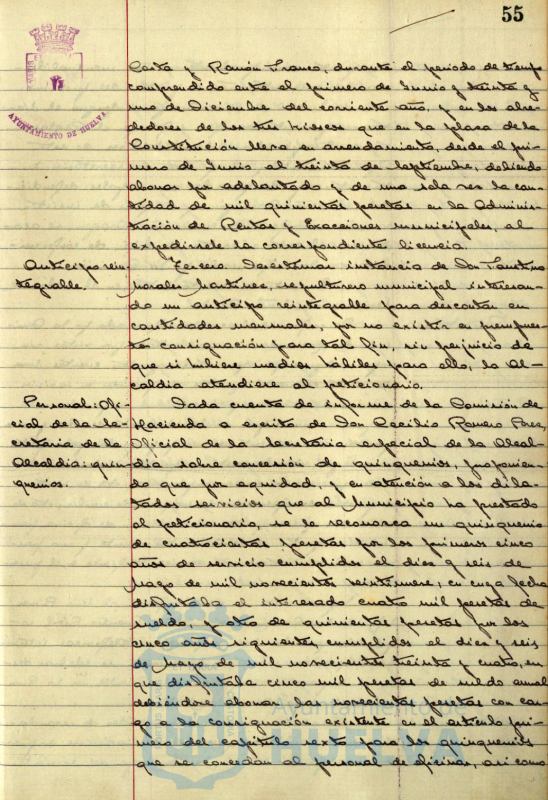 55
AYUNTAMIENTO DE HUELVA
Costa y Ramón Franco, durante el periodo de tiempo
comprendido entre el primero de Junio y treinta y
uno de Diciembre del corriente año, y en los alre-
dedores de los tres kioscos que en la plaza de la
Constitución lleva en arrendamiento, desde el pri-
mero de Junio al treinta de Septiembre, debiendo
abonar por adelantado y de una sola vez la can-
tidad de mil quinientas pesetas en la Adminis-
tración de Rentas y Exacciones municipales, al
expedírsele la correspondiente licencia.
Anticipo rein-
tegrable.
Tercero. Desestimar instancia de Don Faustino
Morales Martínez, sepulturero municipal interesan-
do un anticipo reintegrable para descontar en
cantidades mensuales, por no existir en presupues-
to consignación para tal fin, sin perjuicio de
que si hubiere medios hábiles para ello, la Al-
caldía atendiere al peticionario.
Personal: Ofi-
cial de la Se-
cretaría de la
Alcaldía: quin-
quenios.
Dada cuenta de informe de la Comisión de
Hacienda a escrito de Don Cecilio Romero Pérez,
Oficial de la Secretaría especial de la Alcal-
día sobre concesión de quinquenios, proponien-
do que por equidad, y en atención a los dila-
tados servicios que al Municipio ha prestado
el peticionario, se le reconozca un quinquenio
de cuatrocientas pesetas por los primeros cinco
años de servicio cumplidos el diez y seis de
Mayo de mil novecientos veintinueve, en cuya fecha
disfrutaba el interesado cuatro mil pesetas de
sueldo, y otro de quinientas pesetas por los
cinco años siguientes, cumplidos el diez y seis
de Mayo de mil novecientos treinta y cuatro, en
que disfrutaba cinco mil pesetas de sueldo anual
debiéndose abonar las novecientas pesetas con car-
go a la consignación existente en el artículo pri-
mero del capítulo sexto para los quinquenios
que se concedan al personal de oficinas, así como
Ayuntamiento de
HUELVA